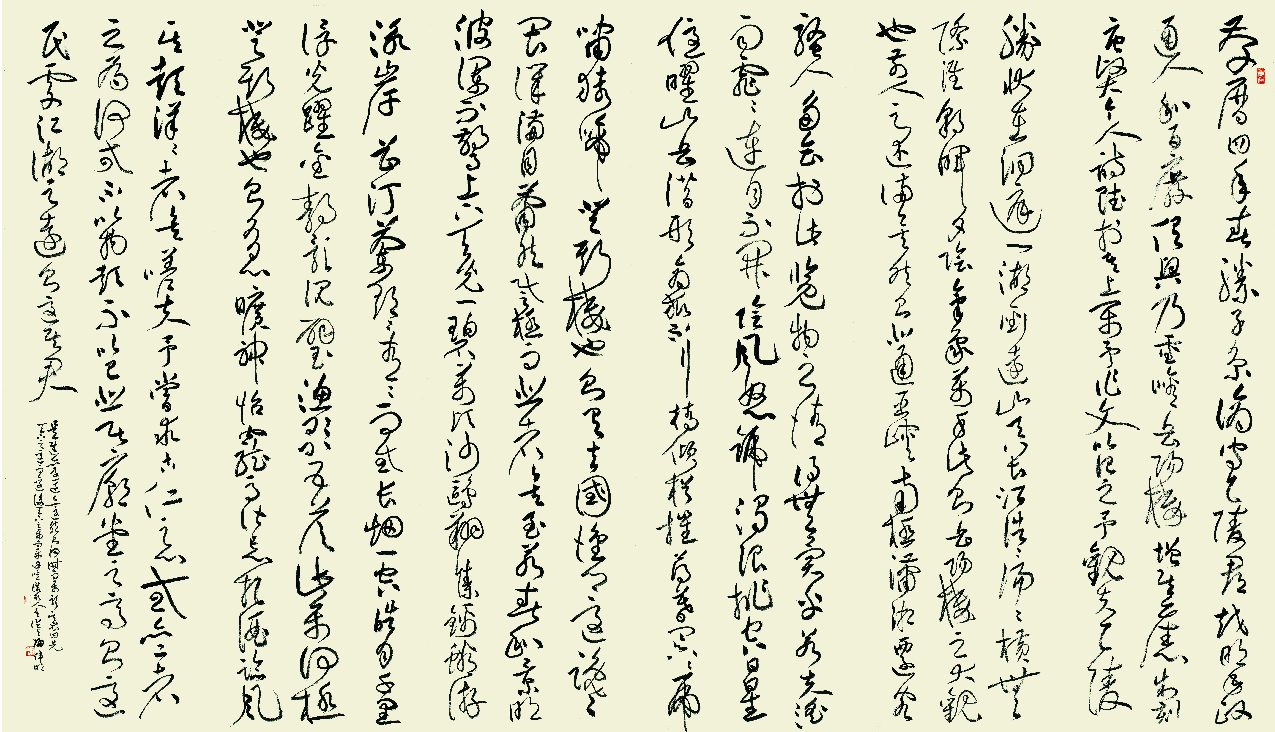 慶曆四年春滕子京謫守巴陵郡越明年政
通人和百廢俱興乃重修岳陽樓增其舊制刻
唐賢今人詩賦於其上屬予作文以記之予觀夫巴陵
勝狀在洞庭一湖銜遠山吞長江浩浩湯湯橫無
際涯朝暉夕陰氣象萬千此則岳陽樓之大觀
也前人之述備矣然則北通巫峽南極瀟湘遷客
騷人多會於此覽物之情得無異乎若夫淫
雨霏霏連月不開陰風怒號濁浪排空日星
隱曜山岳潛形商旅不行檣傾楫摧薄暮冥冥虎
嘯猿啼登斯樓也則有去國懷鄉憂讒
畏譏滿目蕭然感極而悲者矣至若春和景明
波瀾不驚上下天光一碧萬頃沙鷗翔集錦鱗游
泳岸芷汀蘭郁郁青青而或長煙一空皓月千里
浮光躍金靜影沉璧漁歌互答此樂何極
登斯樓也則有心曠神怡寵辱偕忘把酒臨風
其喜洋洋者矣嗟夫予嘗求古仁人之心或異二者
之為何哉不以物喜不以己悲居廟堂之高則憂
民處江湖之遠則憂其君
是進亦憂退亦憂然則何時而樂耶其必曰先
天下之憂而憂後天下之樂而樂乎噫微斯人吾誰與歸